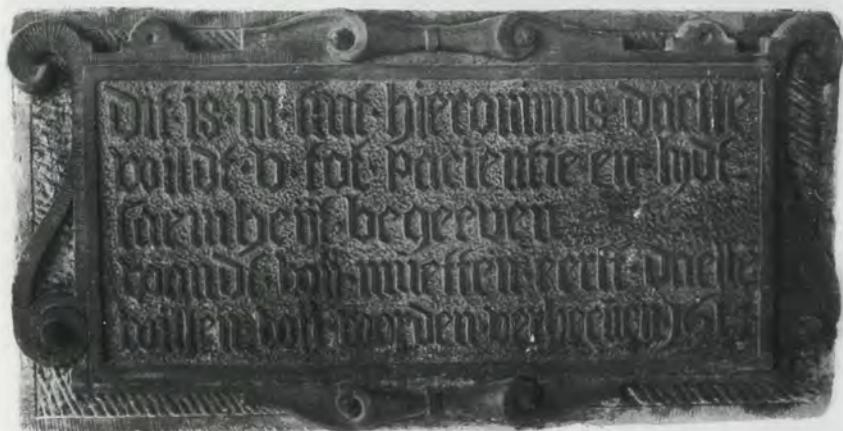 dit·is·in·sint·hieronimus·daelle
wildt·v·tot·pacientie·en·lydt
saemheijt·begeeven
wandt·wij·muetten·eerst·daelle
willen·wij·worden·verheeven